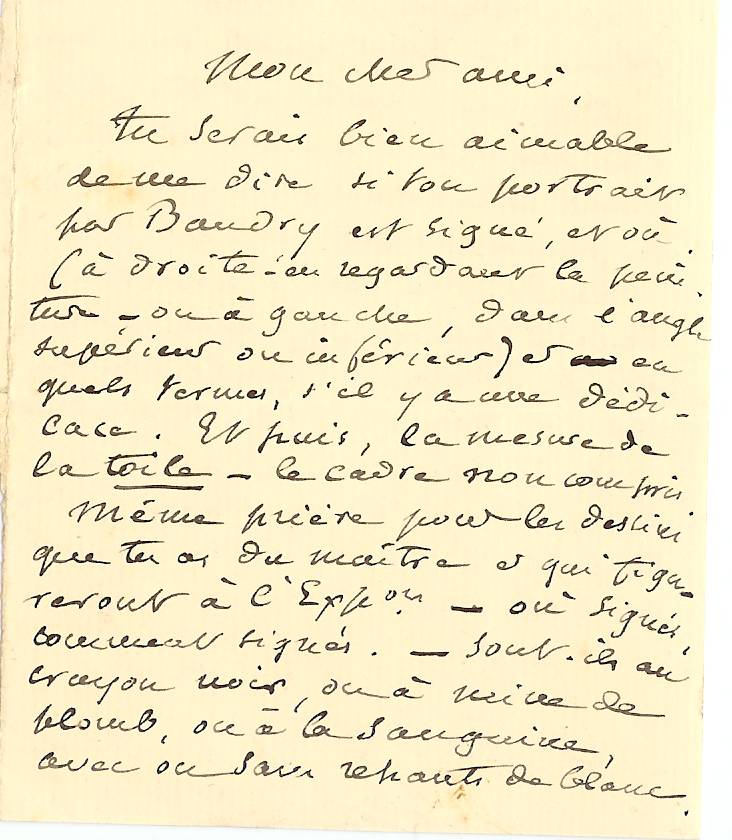 Mon cher ami,
Tu serais bien aimable
de me dire si ton portrait
par Baudry est signé, et où
(à droite - en regardant la pein-
ture - ou à gauche, dans l'angle
supérieur ou inférieur) et en
quels termes, s'il y a une dédi-
cace. Et puis, la mesure de
la toile - le cadre non compris
Même prière pour les dessins
que tu as du maître et qui figu-
reront à l'Expon. - où signés,
comment signés. - Sont-ils au
crayon noir, ou à mine de
plomb, ou à la sanguine,
avec ou sans rehauts de blanc.